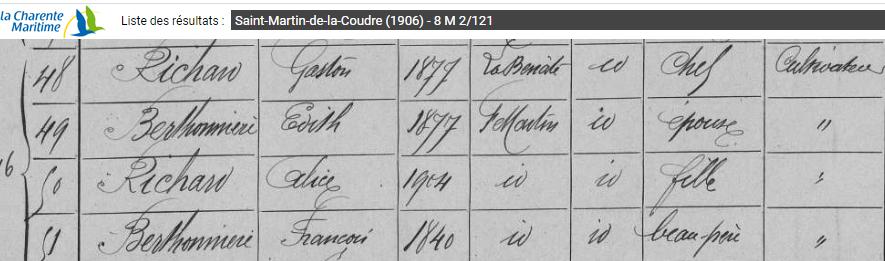 la Charente
Maritime
Liste des résultats : Saint-Martin-de-la-Coudre (1906) - 8 M 2/121
48 Richard Gaston 1877 La Benâte id Chef Cultivateur
49 Berthonnieri Edith 1877 St Martin id épouse "
6 50 Richard Alice 1904 id id fille "
51 Berthonnieri François 1840 id id beau-père "